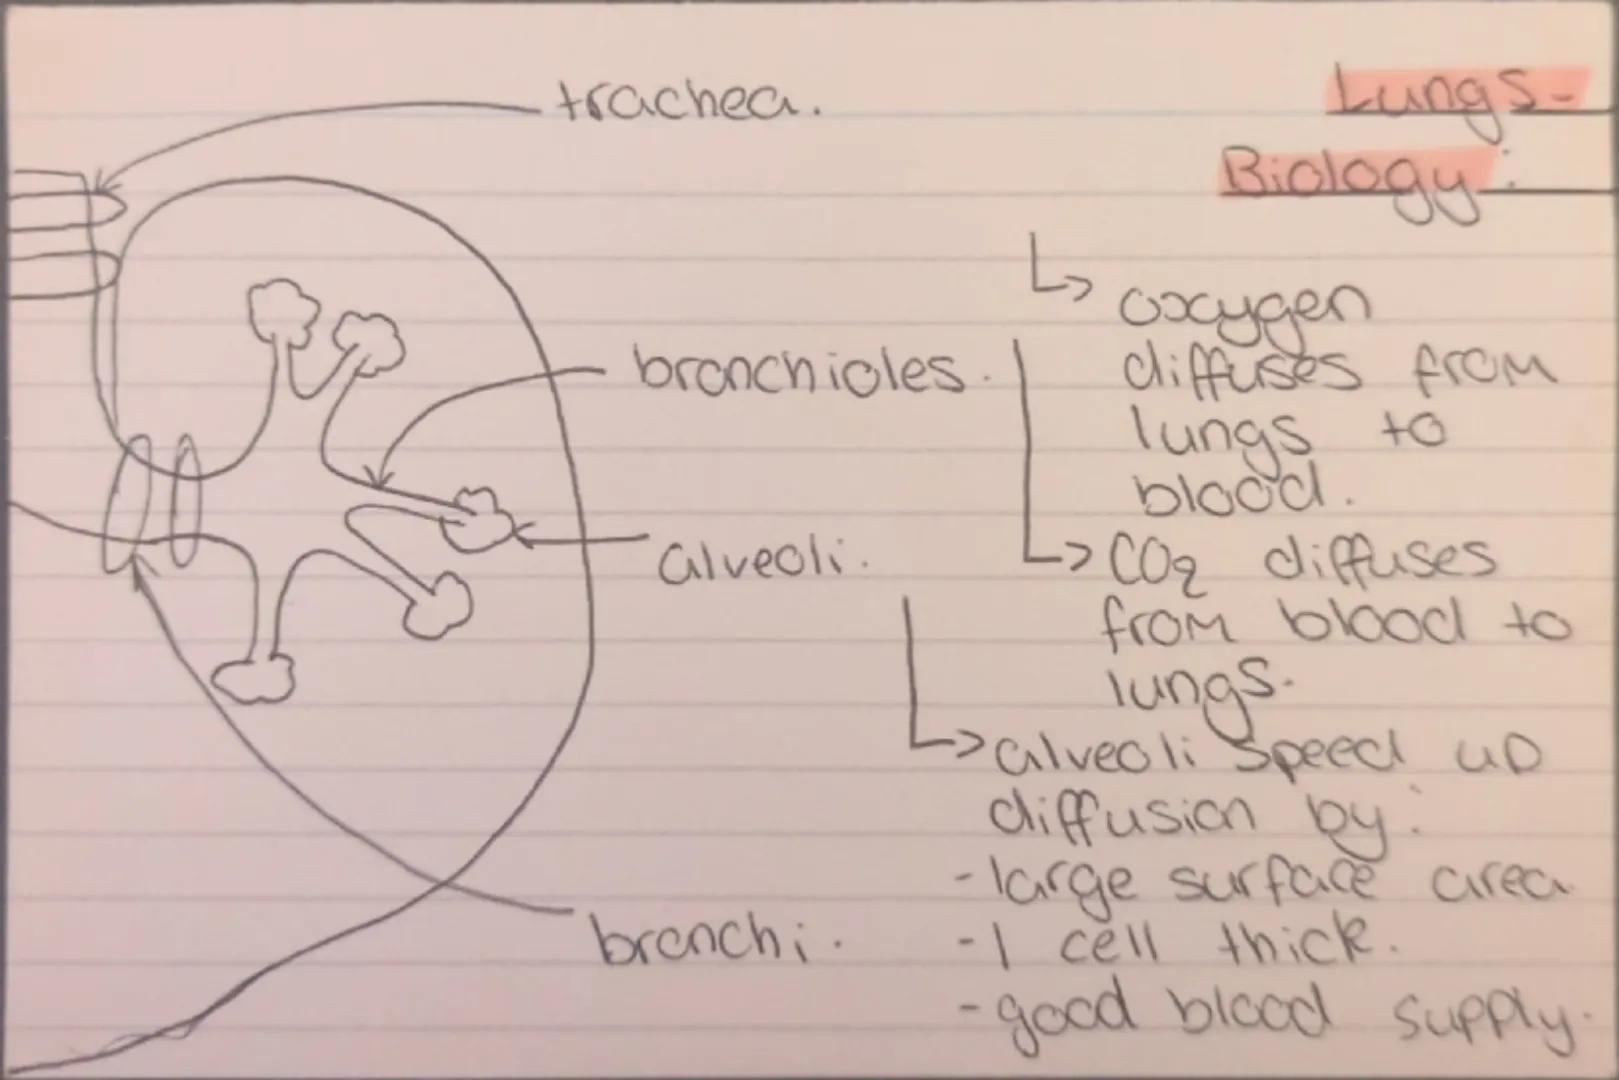 Lungs -
Biology:
trachea.
bronchioles.
alveoli.
bronchi.
↳ oxygen
diffuses from
lungs to
blood.
↳ CO₂ diffuses
from blood to
lungs.
↳ alveoli speed up
diffusion by:
- large surface area
- 1 cell thick.
- good blood supply.